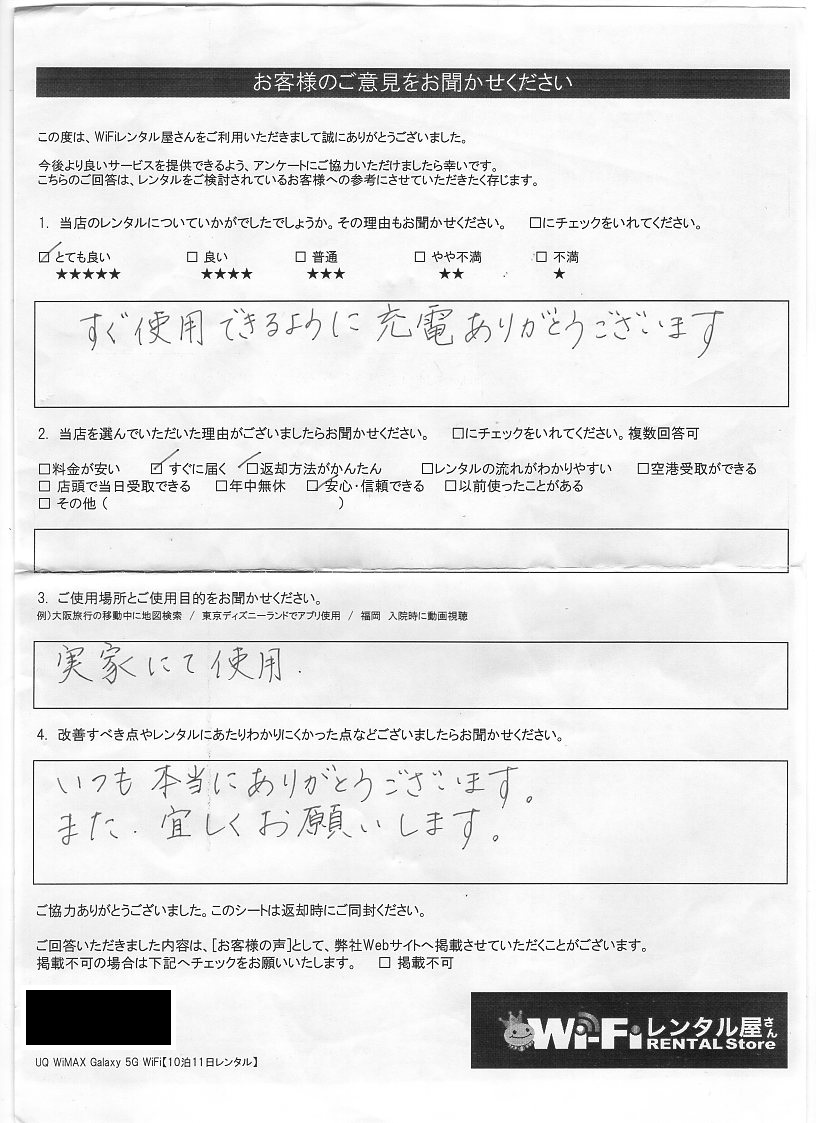 お客様のご意見をお聞かせください
この度は、WiFiレンタル屋さんをご利用いただきまして誠にありがとうございました。
今後より良いサービスを提供できるよう、アンケートにご協力いただけましたら幸いです。
こちらのご回答は、レンタルをご検討されているお客様への参考にさせていただきたく存じます。
1. 当店のレンタルについていかがでしたでしょうか。その理由もお聞かせください。 □にチェックをいれてください。
☑とても良い □ 良い □ 普通 □ やや不満 □ 不満
★★★★★ ★★★★ ★★★ ★★ ★
すぐ使用できるように充電ありがとうございます
2. 当店を選んでいただいた理由がございましたらお聞かせください。 □にチェックをいれてください。複数回答可
□料金が安い ☑ すぐに届く ☑返却方法がかんたん □レンタルの流れがわかりやすい □空港受取ができる
□ 店頭で当日受取できる □年中無休 ☑ 安心・信頼できる □以前使ったことがある
□ その他 ( )
3. ご使用場所とご使用目的をお聞かせください。
例)大阪旅行の移動中に地図検索 / 東京ディズニーランドでアプリ使用 / 福岡 入院時に動画視聴
実家にて使用.
4. 改善すべき点やレンタルにあたりわかりにくかった点などございましたらお聞かせください。
いつも本当にありがとうございます。
また、宜しくお願いします。
ご協力ありがとうございました。このシートは返却時にご同封ください。
ご回答いただきました内容は、[お客様の声]として、弊社Webサイトへ掲載させていただくことがございます。
掲載不可の場合は下記へチェックをお願いいたします。 □ 掲載不可
Wi-Fiレンタル屋さん
RENTAL Store
UQ WiMAX Galaxy 5G WiFi【10泊11日レンタル】